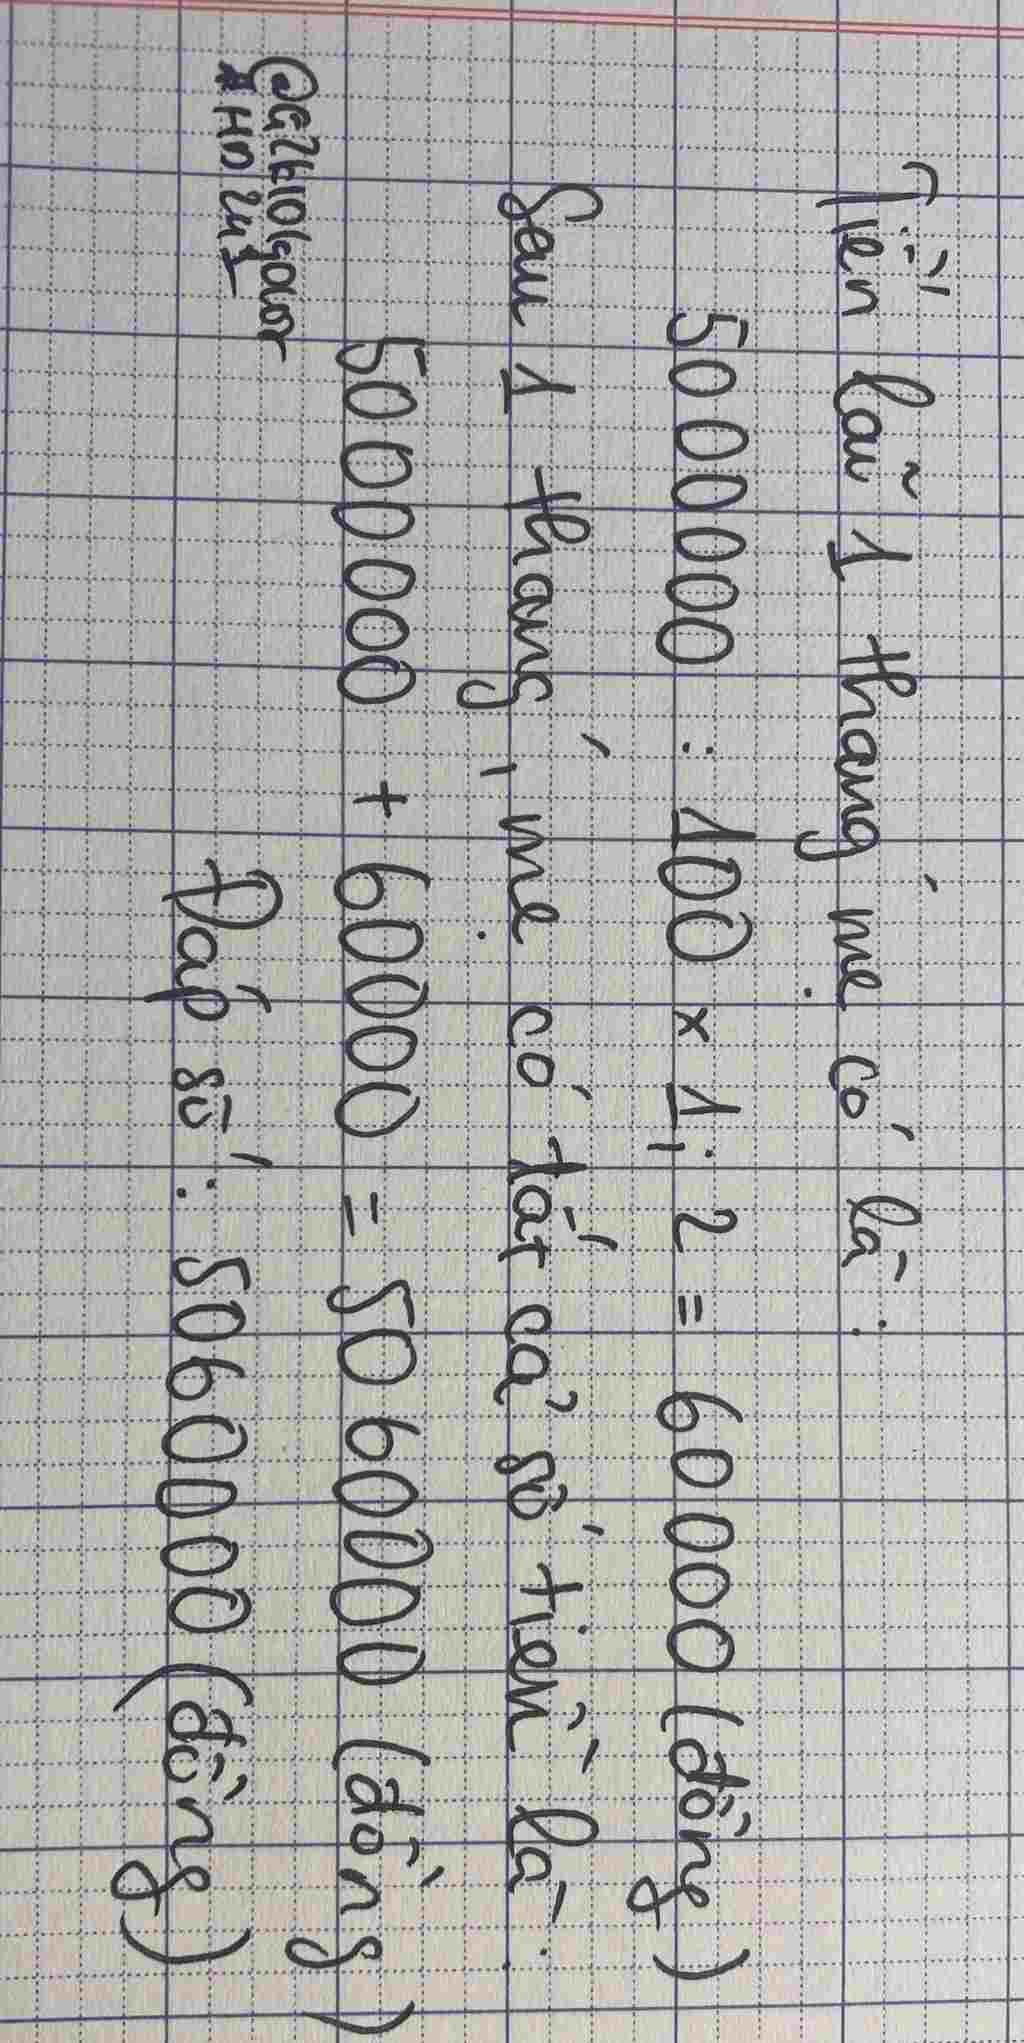 Tiền lãi 1 tháng mẹ có là:
5000000 : 100 x 1,2 = 60000 (đồng)
Sau 1 tháng, mẹ có tất cả số tiền là:
5000000 + 60000 = 5060000 (đồng)
Đáp số: 5060000 (đồng)